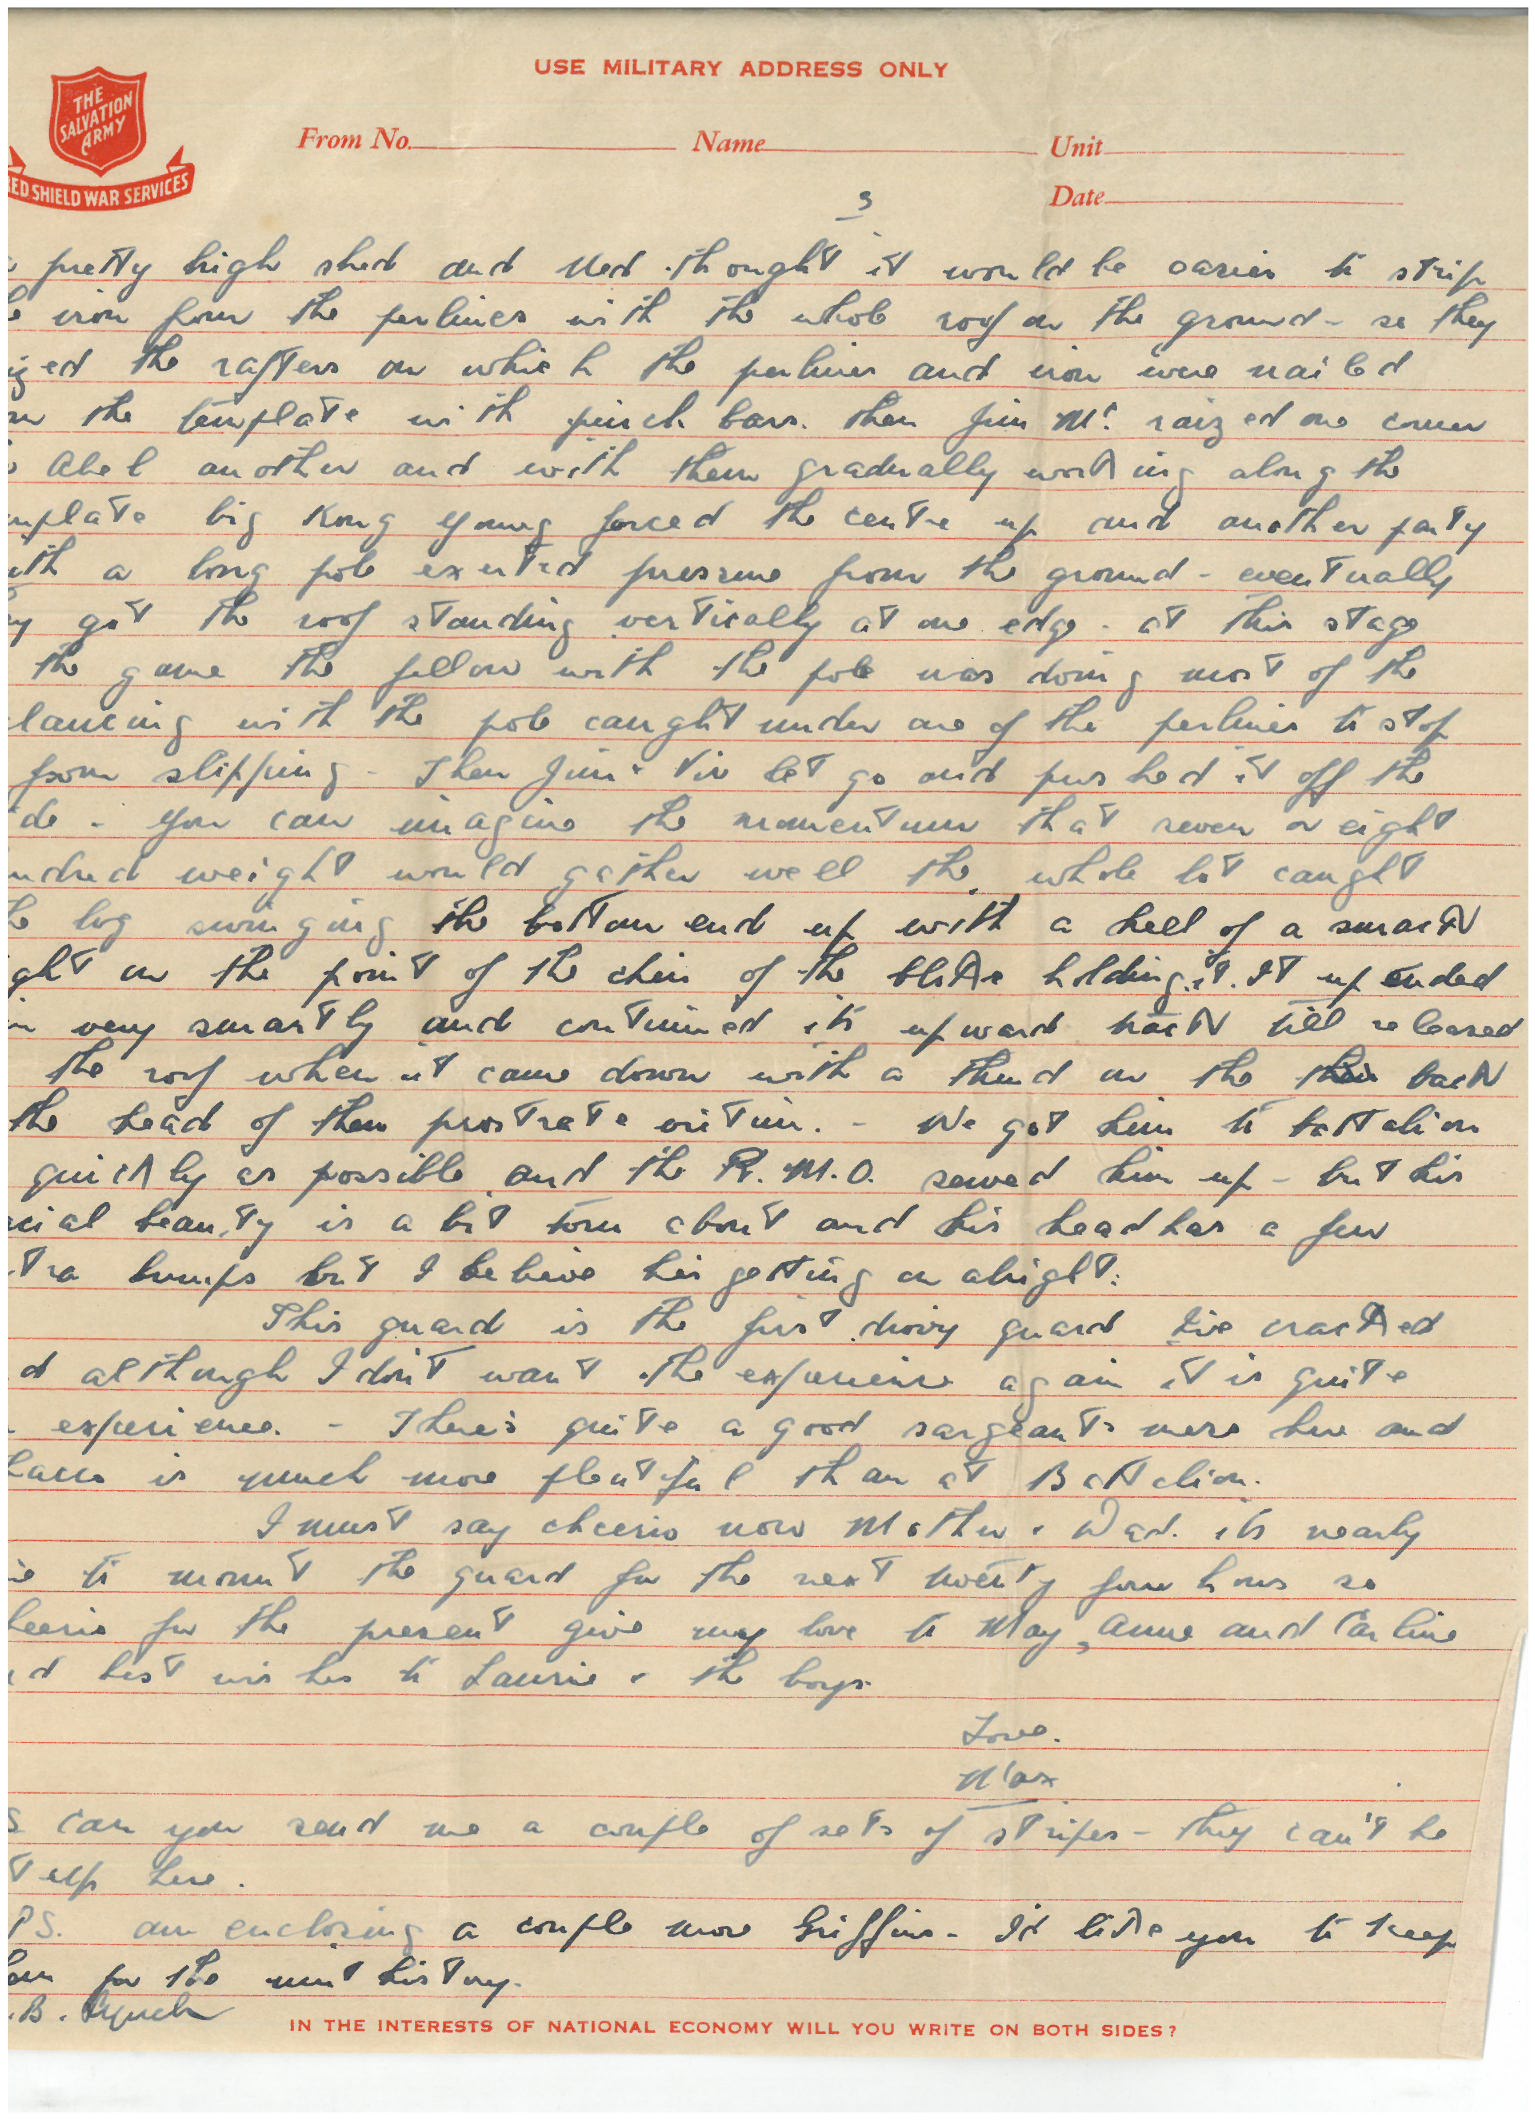 USE MILITARY ADDRESS ONLY
THE SALVATION ARMY
RED SHIELD WAR SERVICES
From No. Name Unit
Date
3
pretty high shed and Ned thought it would be easier to strip
iron from the perlines with the whole roof on the ground - so they
the rafters on which the perlines and iron were nailed
the template with pinch bars. then Jim Mc. raized one corner
Abel another and with them gradually working along the
mplate big Kong Young forced the centre up and another party
ith a long pole exerted pressure from the ground - eventually
ey got the roof standing vertically at one edge - at this stage
the game the fellow with the pole was doing most of the
lancing with the pole caught under one of the perlines to stop
from slipping - Then Jim & Viv let go and pushed it off the
de - you can imagine the momentum that seven or eight
ndred weight would gather well the whole lot caught
he log swinging the bottom end up with a hell of a smack
ght on the point of the chin of the bloke holding it. It up ended
m very smartly and continued its upward track till released
the roof when it came down with a thud on the back
the head of then prostrate victim. - We got him to battalion
quickly as possible and the R.M.O. sewed him up - but his
cial beauty is a bit torn about and his head has a few
tra bumps but I believe his getting on alright.
This guard is the first divvy guard I've cracked
d although I don't want the experience again it is quite
experience. - There's quite a good sargeants mess here and
is much more plentiful than at Battalion.
I must say cheerio now Mother & Dad. its nearly
to mount the guard for the next twenty four hours so
heerio for the present give my love to May, Anne and Carline
nd best wishes to Laurie & the boys.
Love.
Max
S can you send me a couple of sets of stripes - they can't be
t up here.
PS. am enclosing a couple more Griffins - I'd like you to keep
hem for the unit history.
.B. Lynch
IN THE INTERESTS OF NATIONAL ECONOMY WILL YOU WRITE ON BOTH SIDES?